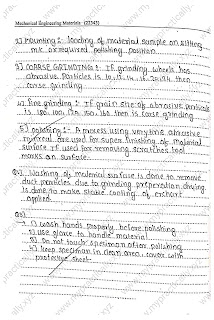 Mechanical Engineering Materials (22343)
2) Mounting : loading of material sample on sitting
m/c or required polishing position
3) COARSE GRINDING : If grinding wheels has
abrasive particles is 10, 12, 14, 16, 20, 24 then
coarse grinding.
4) Fine grinding : If grain size of abrasive particals
is 80, 100, 120, 150, 180 then is coarse grinding
5) polishing : A process using very fine abrasive
material are used for super finishing of material
surface it used for removing scratches, tool
marks on surface.
Q.4) Washing of material surface is done to remove
dust particles due to grinding preperation drying
is done to make stable coating of echant
applied.
Q5)
1) wash hands properly before polishing
2) use glove to handle material
3) Do not touch specimen after polishing
4) Keep specimen in clean area, cover with
protective sheet.